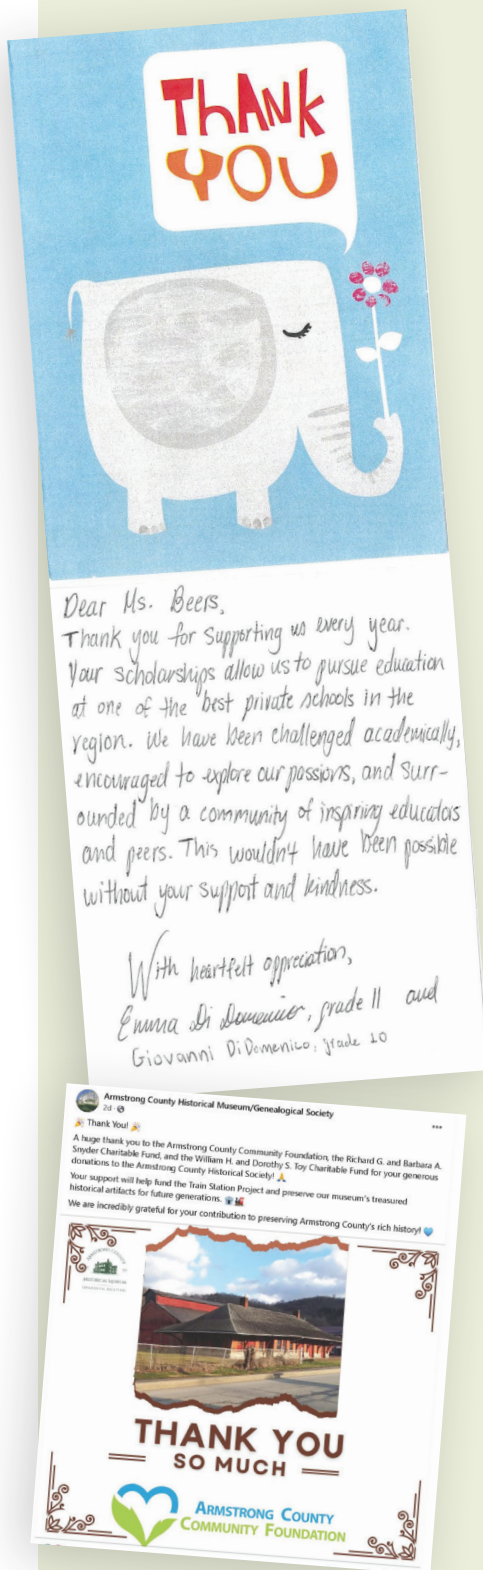 THANK
YOU
Dear Ms. Beers,
Thank you for supporting us every year.
Your scholarships allow us to pursue education
at one of the best private schools in the
region. We have been challenged academically,
encouraged to explore our passions, and surr-
ounded by a community of inspiring educators
and peers. This wouldn't have been possible
without your support and kindness.
With heartfelt appreciation,
Emma Di Domenico, grade 11 and
Giovanni DiDomenico, grade 10
Armstrong County Historical Museum/Genealogical Society
2d
🎉 Thank You! 🎉
A huge thank you to the Armstrong County Community Foundation, the Richard G. and Barbara A.
Snyder Charitable Fund, and the William H. and Dorothy S. Toy Charitable Fund for your generous
donations to the Armstrong County Historical Society! 🙏
Your support will help fund the Train Station Project and preserve our museum's treasured
historical artifacts for future generations.
We are incredibly grateful for your contribution to preserving Armstrong County's rich history! 💙
ARMSTRONG COUNTY
HISTORICAL MUSEUM
THANK YOU
SO MUCH
ARMSTRONG COUNTY
COMMUNITY FOUNDATION